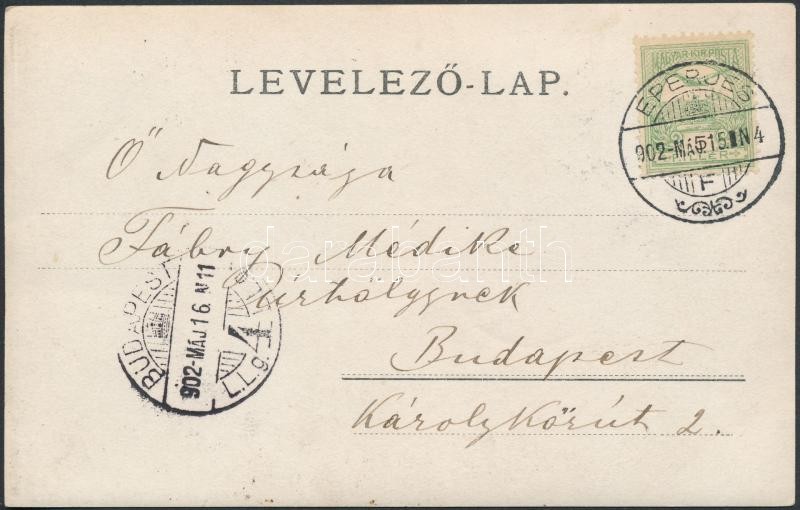 MAGYAR·KIR·POSTA
LEVELEZŐ-LAP.
EPERJES
902-MÁJ 15. N4
5
FILLÉR
F
Ő Nagysága
Fábry Médike
Úrhölgynek
Budapest
Károly Körút 2.
BUDAPEST
902-MÁJ 16. N11
darabanth